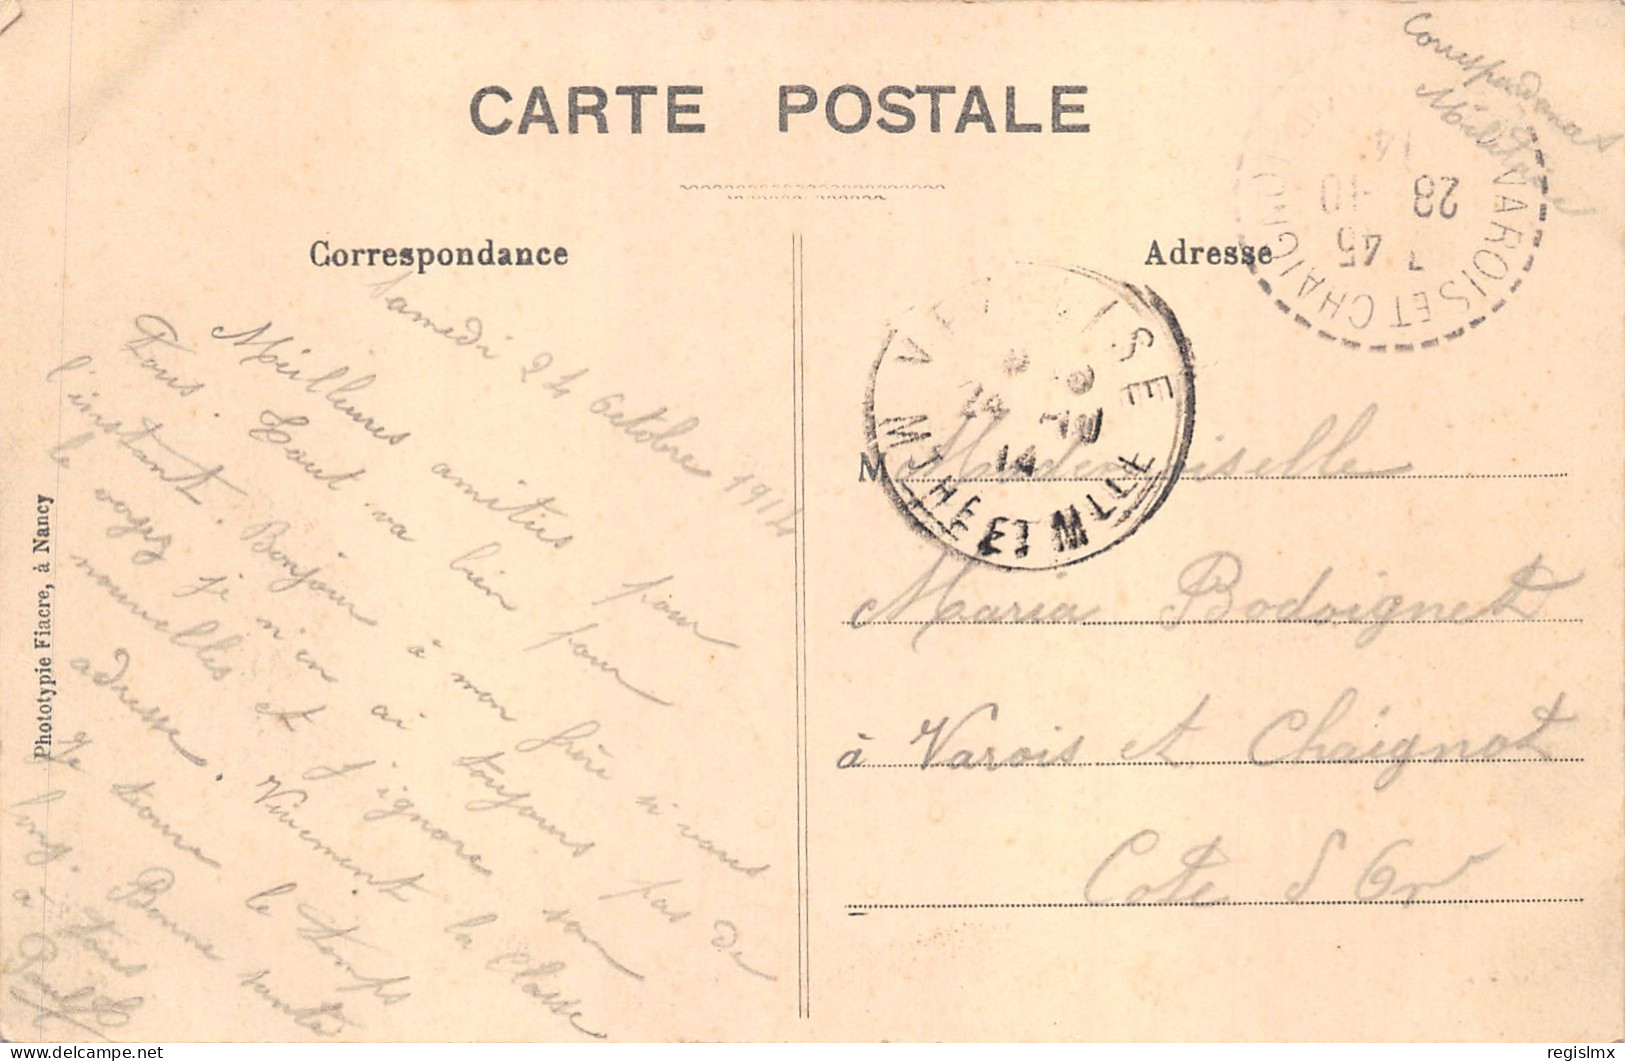 CARTE POSTALE
Correspondances
Militaire
Correspondance
Adresse
Samedi 24 Octobre 1914
Meilleures amitiés pour
Tous. Tout va bien pour
l'instant. Bonjour à mon frère si vous
le voyez je n'en ai toujours pas de
nouvelles et j'ignore son
adresse. Vivement la Classe
Je trouve le temps
long. Bonne santé
à tous
Paul
M Mademoiselle
Maria Bodoignet
à Varois et Chaignot
Cote d'Or
VEZELISE
14
MTHE ET MLLE
VAROIS ET CHAIGNOT
7 45
28 10
14
Phototypie Fiacre, à Nancy
delcampe.net
regislmx